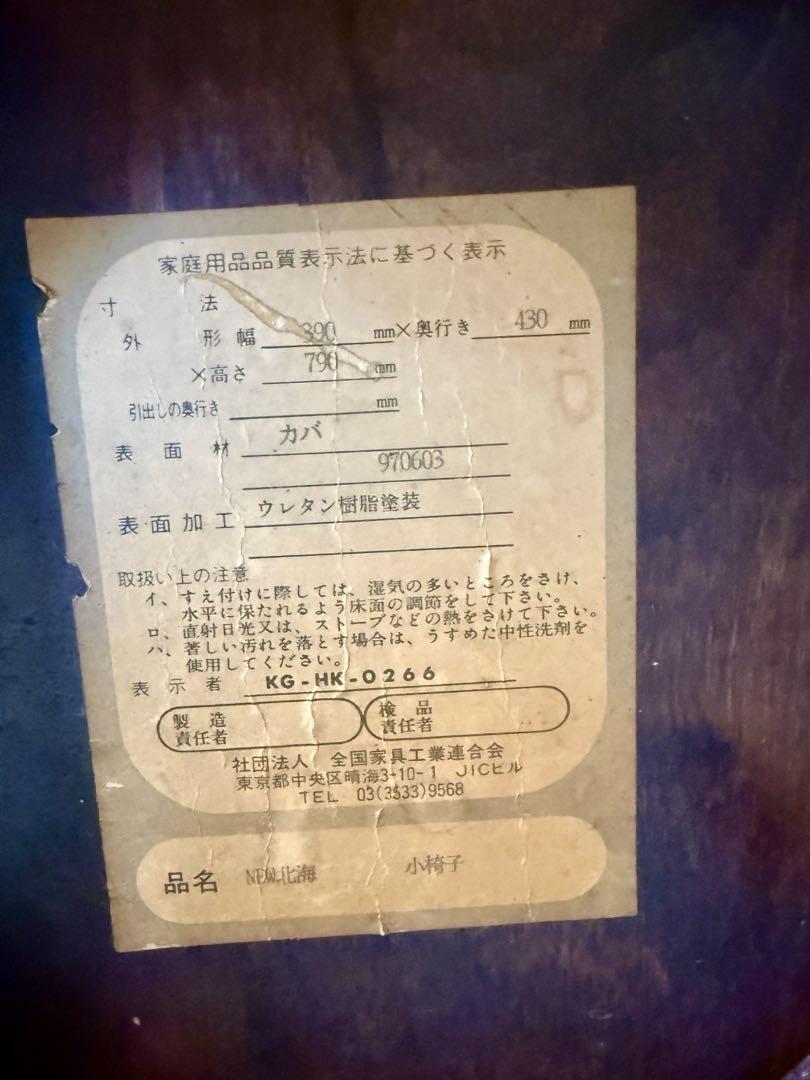 家庭用品品質表示法に基づく表示
寸 法
外 形 幅 390 mm×奥行き 430 mm
×高さ 790 mm
引出しの奥行き mm
表 面 材 カバ
970603
表面加工 ウレタン樹脂塗装
取扱い上の注意
イ、すえ付けに際しては、湿気の多いところをさけ、
水平に保たれるよう床面の調節をして下さい。
ロ、直射日光又は、ストーブなどの熱をさけて下さい。
ハ、著しい汚れを落とす場合は、うすめた中性洗剤を
使用してください。
表 示 者 KG-HK-0266
製 造 責任者
検 品 責任者
社団法人 全国家具工業連合会
東京都中央区晴海3-10-1 JICビル
TEL 03(3533)9568
品名 NEW北海 小椅子